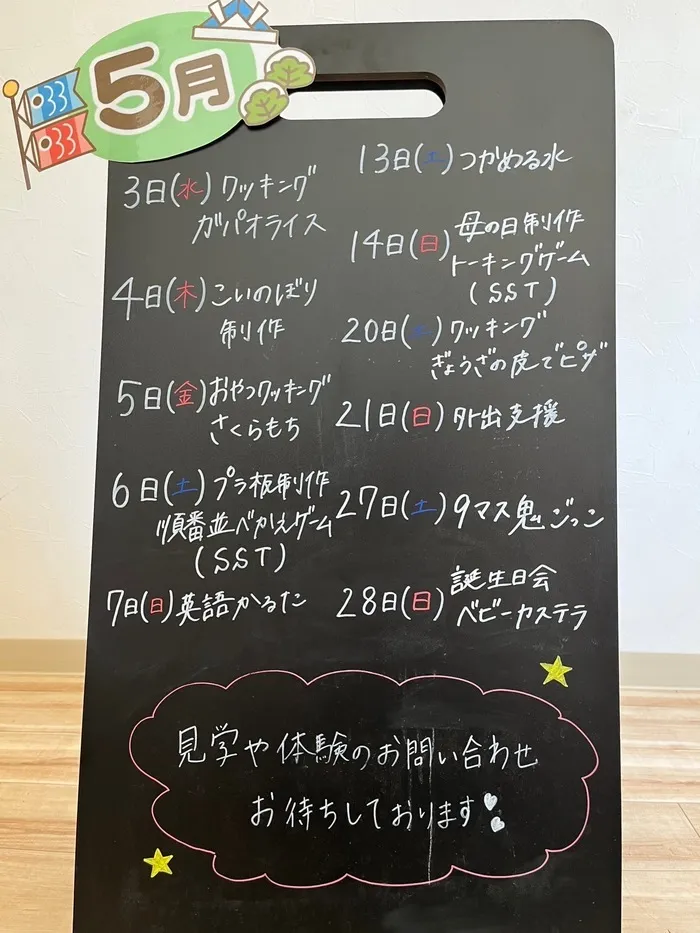 5月
3日(水)クッキング
ガパオライス
4日(木)こいのぼり
制作
5日(金)おやつクッキング
さくらもち
6日(土)プラ板制作
順番並べかえゲーム
(SST)
7日(日)英語かるた
13日(土)つかめる水
14日(日)母の日制作
トーキングゲーム
(SST)
20日(土)クッキング
ぎょうざの皮でピザ
21日(日)外出支援
27日(土)9マス鬼ごっこ
28日(日)誕生日会
ベビーカステラ
見学や体験のお問い合わせ
お待ちしております